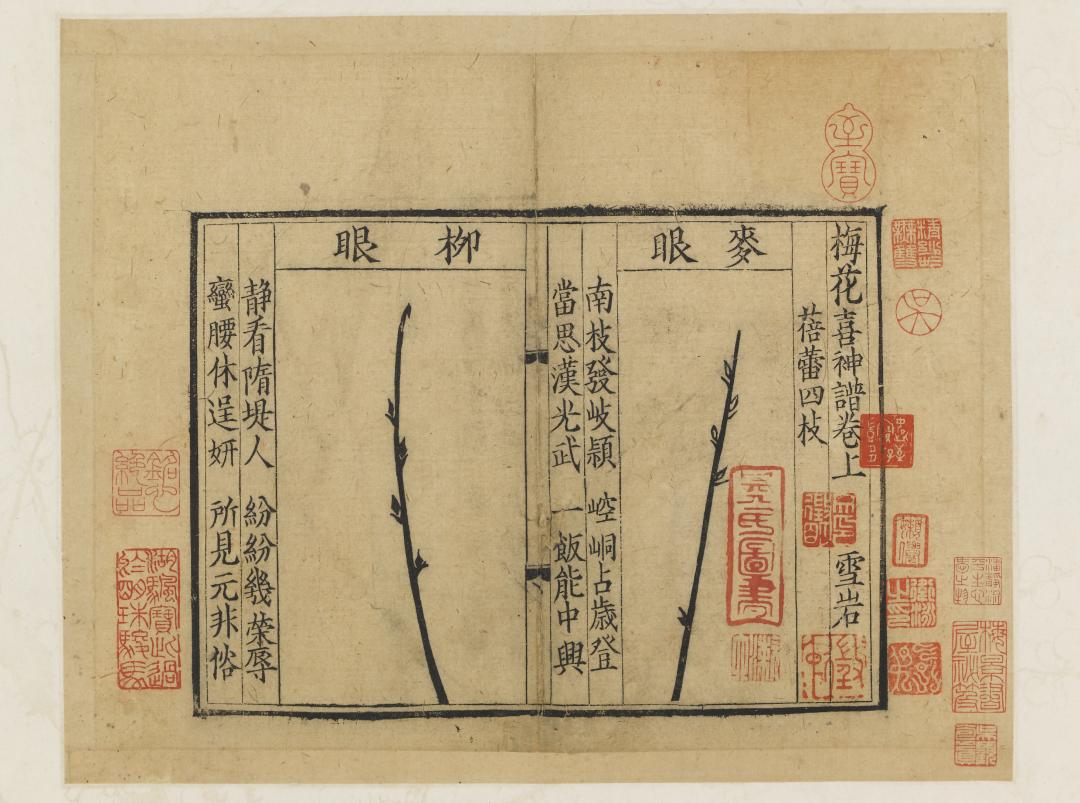 梅花喜神譜卷上
雪岩
蓓蕾四枝
麥眼
南枝發岐穎 崆峒占歲登
當思漢光武 一飯能中興
柳眼
静看隋堤人 紛紛幾榮辱
蠻腰休逞妍 所見元非俗